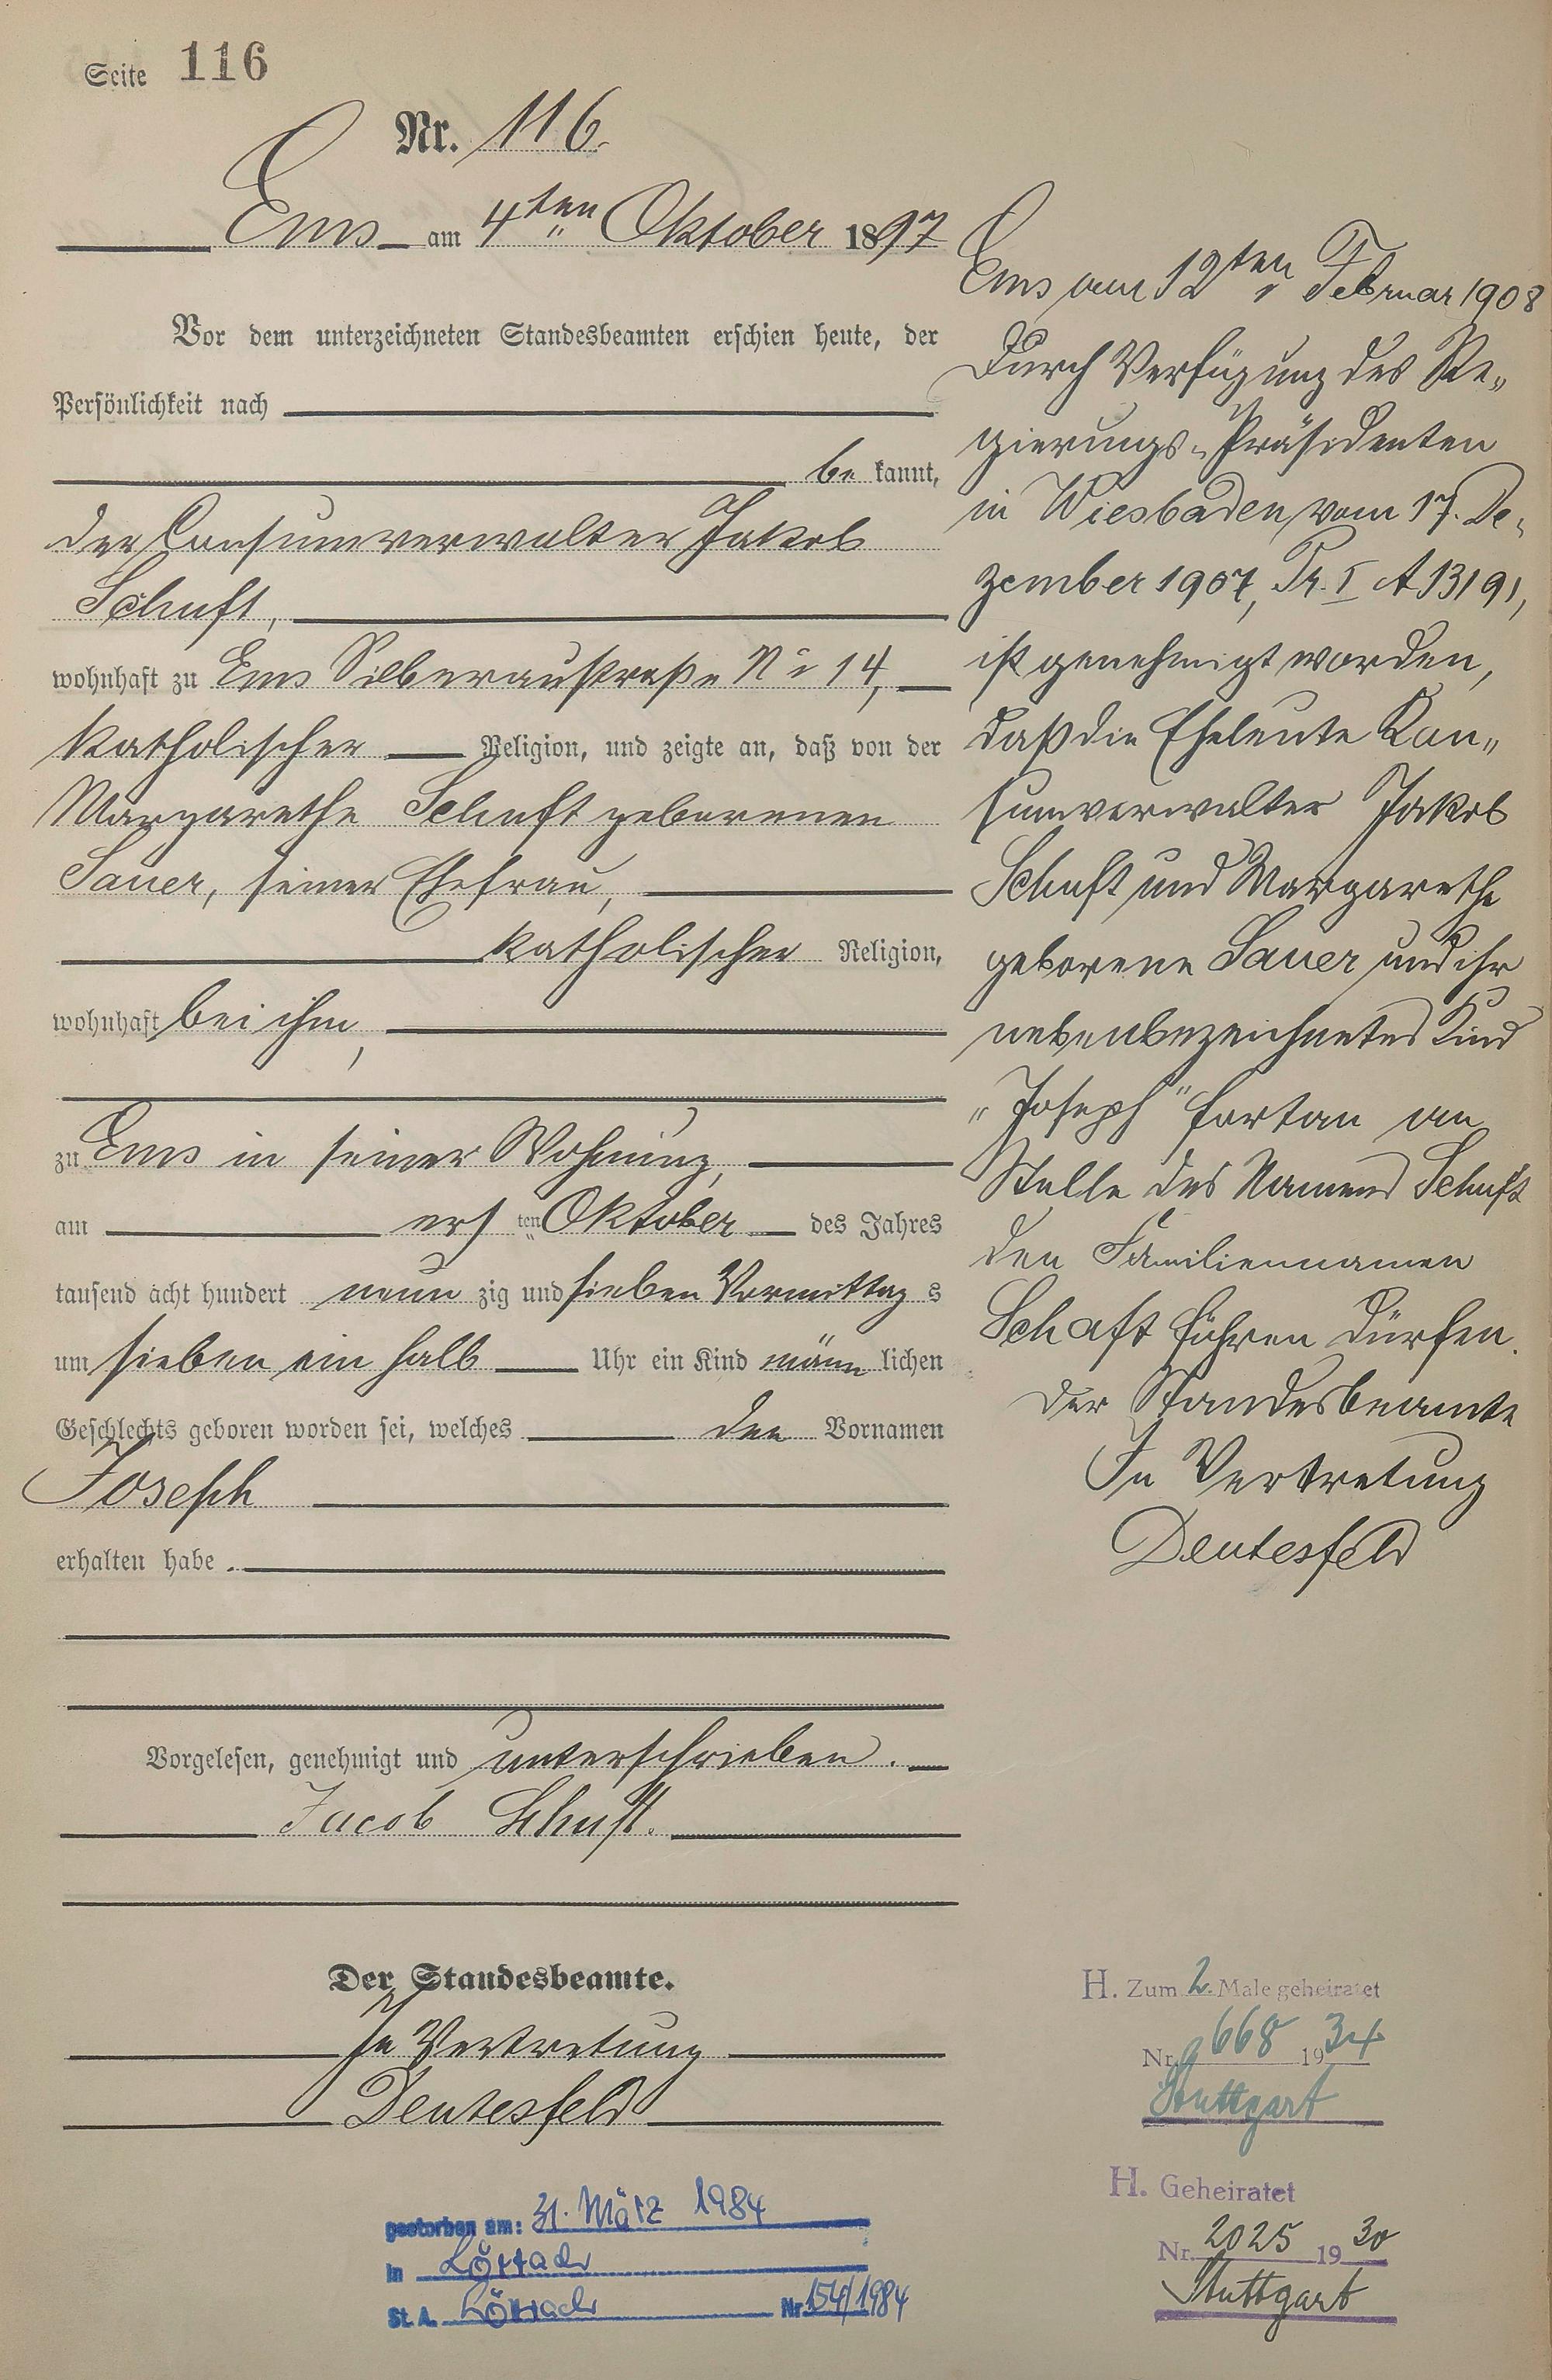 Seite 116
Nr. 116.
Ems am 4ten Oktober 1897
Vor dem unterzeichneten Standesbeamten erschien heute, der
Persönlichkeit nach
be kannt,
der Consumverwalter Jakob
Schuft,
wohnhaft zu Ems Silberaustraße No 14,
katholischer Religion, und zeigte an, daß von der
Margarethe Schuft geborenen
Sauer, seiner Ehefrau,
katholischer Religion,
wohnhaft bei ihm,
zu Ems in seiner Wohnung,
am ers ten Oktober des Jahres
tausend acht hundert neun zig und sieben Vormittag s
um sieben ein halb Uhr ein Kind männ lichen
Geschlechts geboren worden sei, welches den Vornamen
Joseph
erhalten habe.
Vorgelesen, genehmigt und unterschrieben.
Jacob Schuft.
Der Standesbeamte.
In Vertretung
Deutesfeld
gestorben am: 31. März 1984
in Lörrach
St. A. Lörrach Nr 154/1984
Ems am 12ten Februar 1908
Durch Verfügung des Re„
gierungs-Präsidenten
in Wiesbaden vom 17. De„
zember 1907, Pr. I A 13191,
ist genehmigt worden,
daß die Eheleute Kon„
sumverwalter Jakob
Schuft und Margarethe
geborene Sauer und ihr
nebenbezeichnetes Kind
„Joseph" fortan an
Stelle des Namens Schuft
den Familiennamen
Schaft führen dürfen.
Der Standesbeamte
In Vertretung
Deutesfeld
H. Zum 2. Male geheiratet
Nr. 668 1934
Stuttgart
H. Geheiratet
Nr. 2025 1930
Stuttgart